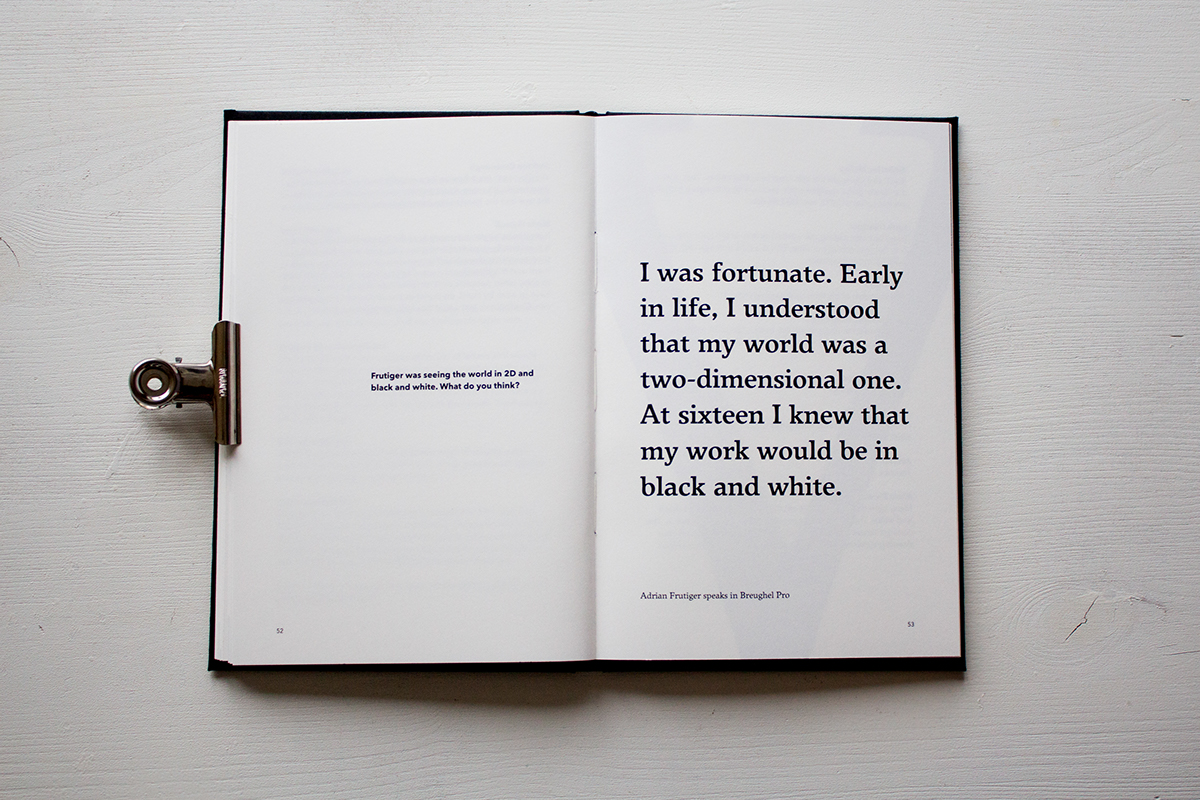 Frutiger was seeing the world in 2D and
black and white. What do you think?
52
I was fortunate. Early
in life, I understood
that my world was a
two-dimensional one.
At sixteen I knew that
my work would be in
black and white.
Adrian Frutiger speaks in Breughel Pro
53